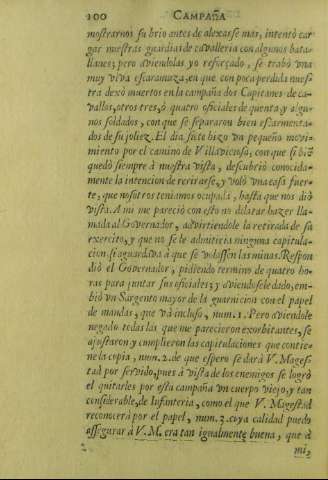 100 CAMPAÑA
mostrarnos su brio antes de alexarse más, intentò car
gar nuestras guardias de cavalleria con algunos bata-
llones; pero aviendolas yo reforçado, se trabò una
muy viva escaramuza, en que con poca perdida nues-
tra dexò muertos en la campaña dos Capitanes de ca-
vallos, otros tres, ò quatro oficiales de quenta, y algu-
nos soldados, con que se separaron bien escarmenta-
dos de su
El dia siete hizo un pequeño movi-
miento por el camino de Villaviciosa, con que si biē
quedò siempre à nuestra vista, descubriò conocida-
mente la intencion de retirarse, y volò una casa fuer-
te, que nosotros teniamos ocupada, hasta que nos diò
vista. A mi me pareciò con esto no dilatar hazer lla-
mada al Governador, advirtiendole la retirada de su
exercito, y que no se le admitiria ninguna capitula-
cion si aguardava à que se volassen las minas. Respon
diò el Governador, pidiendo termino de quatro ho-
ras para juntar sus oficiales; y aviendosele dado, em-
biò un Sargento mayor de la guarnicion con el papel
de mandas, que và incluso, num. 1. Pero aviendole
negado todas las que me parecieron exorbitantes, se
ajustaron y cumplieron las capitulaciones que contie-
ne la copia, num. 2. de que espero se darà V. Mages-
tad por servido, pues à vista de los enemigos se logrò
el quitarles por esta campaña un cuerpo viejo, y tan
considerable, de Infanteria, como el que V. Magestad
reconocerà por el papel, num. 3. cuya calidad puedo
assegurar à V. M. era tan igualmente buena, que à
mi,